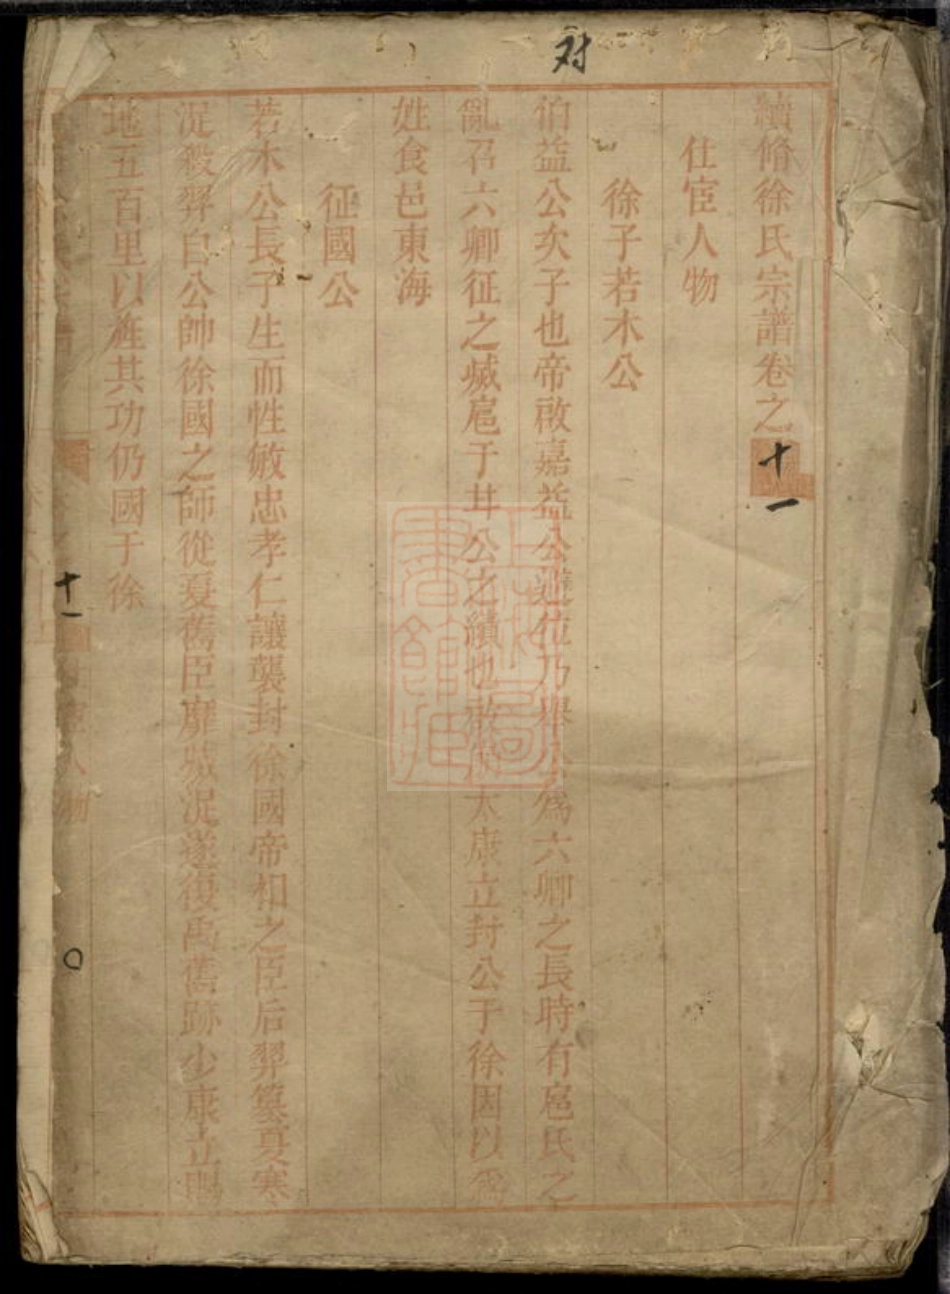 对
續脩徐氏宗譜卷之十一
仕宦人物
徐子若木公
伯益公次子也帝啟嘉益公避位乃舉公為六卿之長時有扈氏之
亂召六卿征之滅扈于甘公之績也故太康立封公于徐因以為
姓食邑東海
征國公
若木公長子生而性敏忠孝仁讓襲封徐國帝相之臣后羿篡夏寒
浞殺羿自公帥徐國之師從夏舊臣靡滅浞遂復禹舊跡少康立賜
地五百里以旌其功仍國于徐
十一
仕宦人物